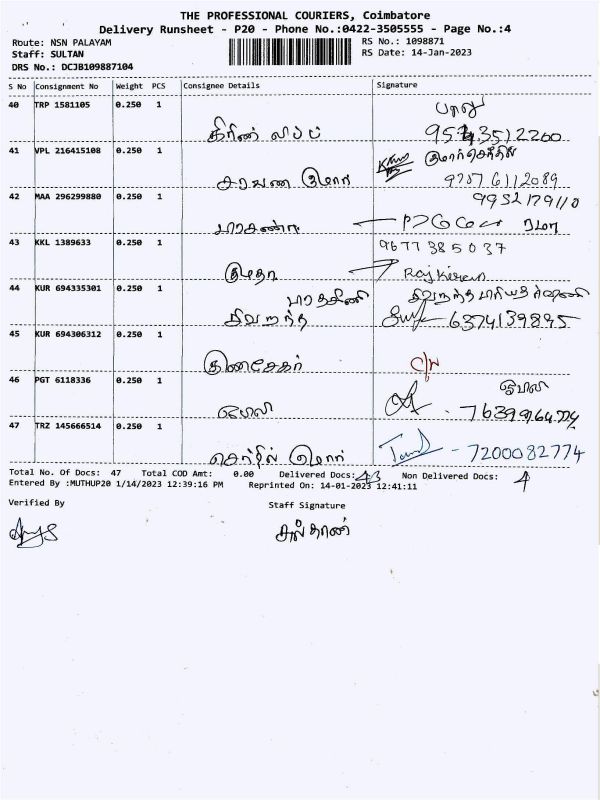 THE PROFESSIONAL COURIERS, Coimbatore
Delivery Runsheet - P20 - Phone No.:0422-3505555 - Page No.:4
Route: NSN PALAYAM RS No.: 1098871
Staff: SULTAN RS Date: 14-Jan-2023
DRS No.: DCJB109887104
S No Consignment No Weight PCS Consignee Details Signature
40 TRP 1581105 0.250 1 பாலு
கிரீன் லிப்ட் 95743512200
41 VPL 216415108 0.250 1
சரவண குமார் 97876112089
42 MAA 296299880 0.250 1 9952179110
ரமா
43 KKL 1389633 0.250 1 9677385037
குமுதா Rajkiran
44 KUR 694335301 0.250 1
சிவறந்த 6374139895
45 KUR 694306312 0.250 1
குணசேகர் C/W
46 PGT 6118336 0.250 1 ஓமலி
ஓமலி
47 TRZ 145666514 0.250 1
செந்தில் குமார் - 7200082774
Total No. Of Docs: 47 Total COD Amt: 0.00 Delivered Docs: 43 Non Delivered Docs: 4
Entered By :MUTHUP20 1/14/2023 12:39:16 PM Reprinted On: 14-01-2023 12:41:11
Verified By Staff Signature
சுல்தான்